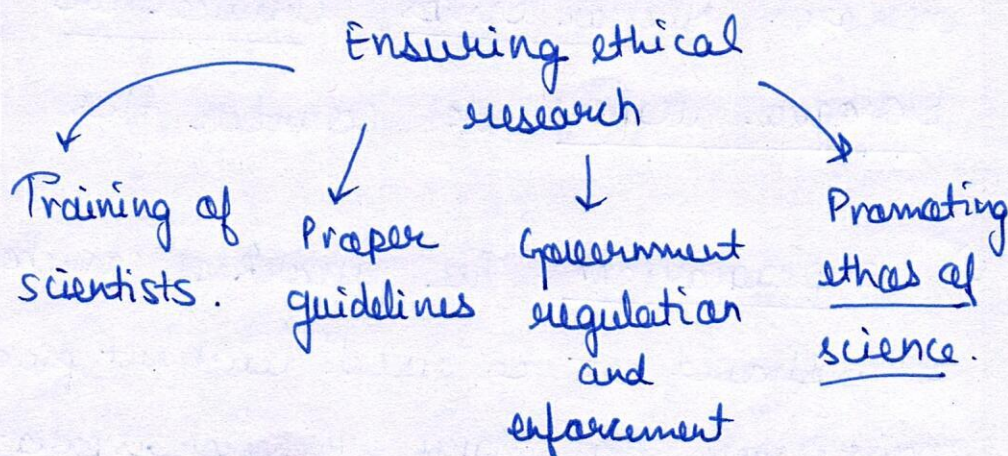 Ensuring ethical
research
Training of
scientists.
Proper
guidelines
Government
regulation
and
enforcement
Promoting
ethos of
science.